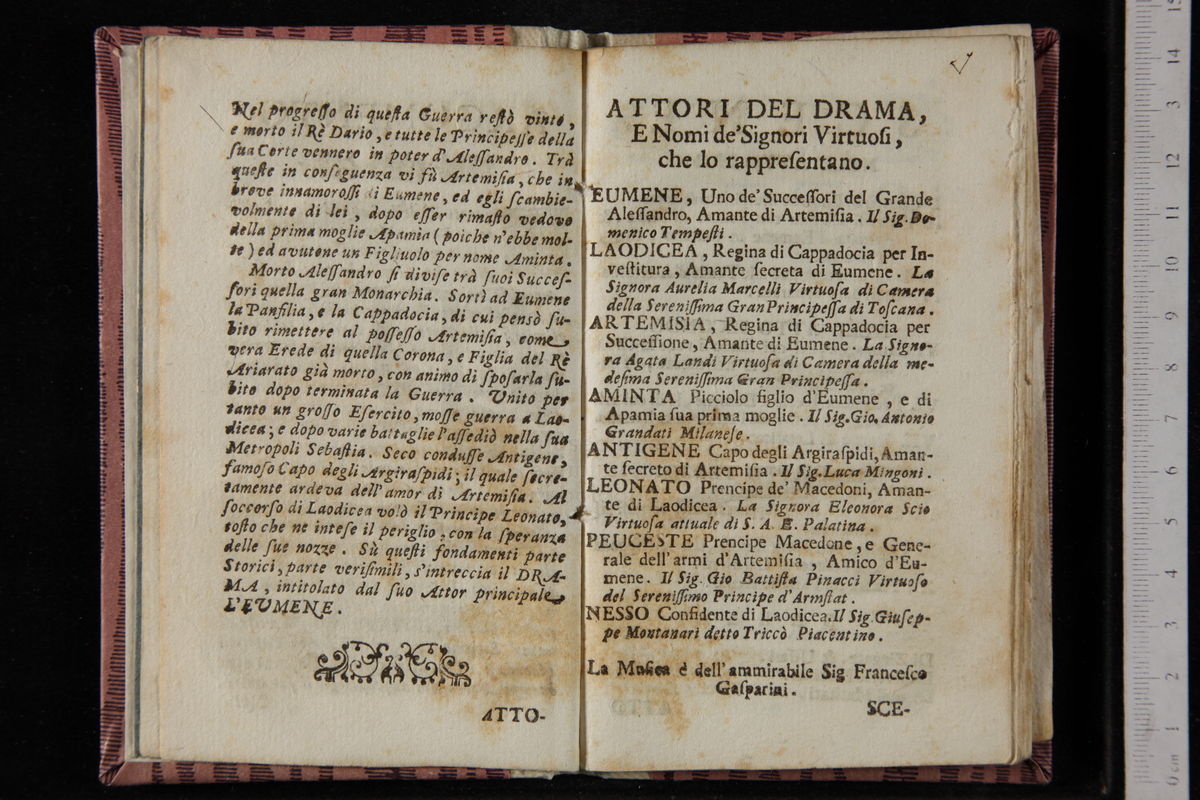 Nel progreſſo di queſta Guerra reſtò vinto,
e morto il Rè Dario, e tutte le Principeſſe della
ſua Corte vennero in poter d'Aleſſandro. Trà
queſte in conſeguenza vi fù Artemiſia, che in
breve innamoroſſi di Eumene, ed egli ſcambie-
volmente di lei, dopo eſſer rimaſto vedovo
della prima moglie Apamia (poiche n'ebbe mol-
te) ed avutone un Figliuolo per nome Aminta.
Morto Aleſſandro ſi diviſe trà ſuoi Succeſ-
ſori quella gran Monarchia. Sortì ad Eumene
la Panfilia, e la Cappadocia, di cui pensò ſu-
bito rimettere al poſſeſſo Artemiſia, come
vera Erede di quella Corona, e Figlia del Rè
Ariarato già morto, con animo di ſpoſarla ſu-
bito dopo terminata la Guerra. Unito per
tanto un groſſo Eſercito, moſſe guerra a Lao-
dicea; e dopo varie battaglie l'aſſediò nella ſua
Metropoli Sebaſtia. Seco conduſſe Antigene,
famoſo Capo degli Argiraſpidi; il quale ſecre-
tamente ardeva dell'amor di Artemiſia. Al
ſoccorſo di Laodicea volò il Principe Leonato,
toſto che ne inteſe il periglio, con la ſperanza
delle ſue nozze. Sù queſti fondamenti parte
Storici, parte veriſimili, s'intreccia il DRA-
MA, intitolato dal ſuo Attor principale
L'EUMENE.
ATTO-
ATTORI DEL DRAMA,
E Nomi de'Signori Virtuoſi,
che lo rappreſentano.
EUMENE, Uno de' Succeſſori del Grande
Aleſſandro, Amante di Artemiſia. Il Sig. Do-
menico Tempeſti.
LAODICEA, Regina di Cappadocia per In-
veſtitura, Amante ſecreta di Eumene. La
Signora Aurelia Marcelli Virtuoſa di Camera
della Sereniſſima Gran Principeſſa di Toſcana.
ARTEMISIA, Regina di Cappadocia per
Succeſſione, Amante di Eumene. La Signo-
ra Agata Landi Virtuoſa di Camera della me-
deſima Sereniſſima Gran Principeſſa.
AMINTA Picciolo figlio d'Eumene, e di
Apamia ſua prima moglie. Il Sig. Gio. Antonio
Grandati Milaneſe.
ANTIGENE Capo degli Argiraſpidi, Aman-
te ſecreto di Artemiſia. Il Sig. Luca Mingoni.
LEONATO Prencipe de' Macedoni, Aman-
te di Laodicea. La Signora Eleonora Scio
Virtuoſa attuale di S. A. E. Palatina.
PEUCESTE Prencipe Macedone, e Gene-
rale dell'armi d'Artemiſia, Amico d'Eu-
mene. Il Sig. Gio Battiſta Pinacci Virtuoſo
del Sereniſſimo Principe d'Armſtat.
NESSO Confidente di Laodicea. Il Sig. Giuſep-
pe Montanari detto Triccò Piacentino.
La Muſica è dell'ammirabile Sig Franceſco
Gaſparini.
SCE-
0 cm 1 2 3 4 5 6 7 8 9 10 11 12 13 14 15